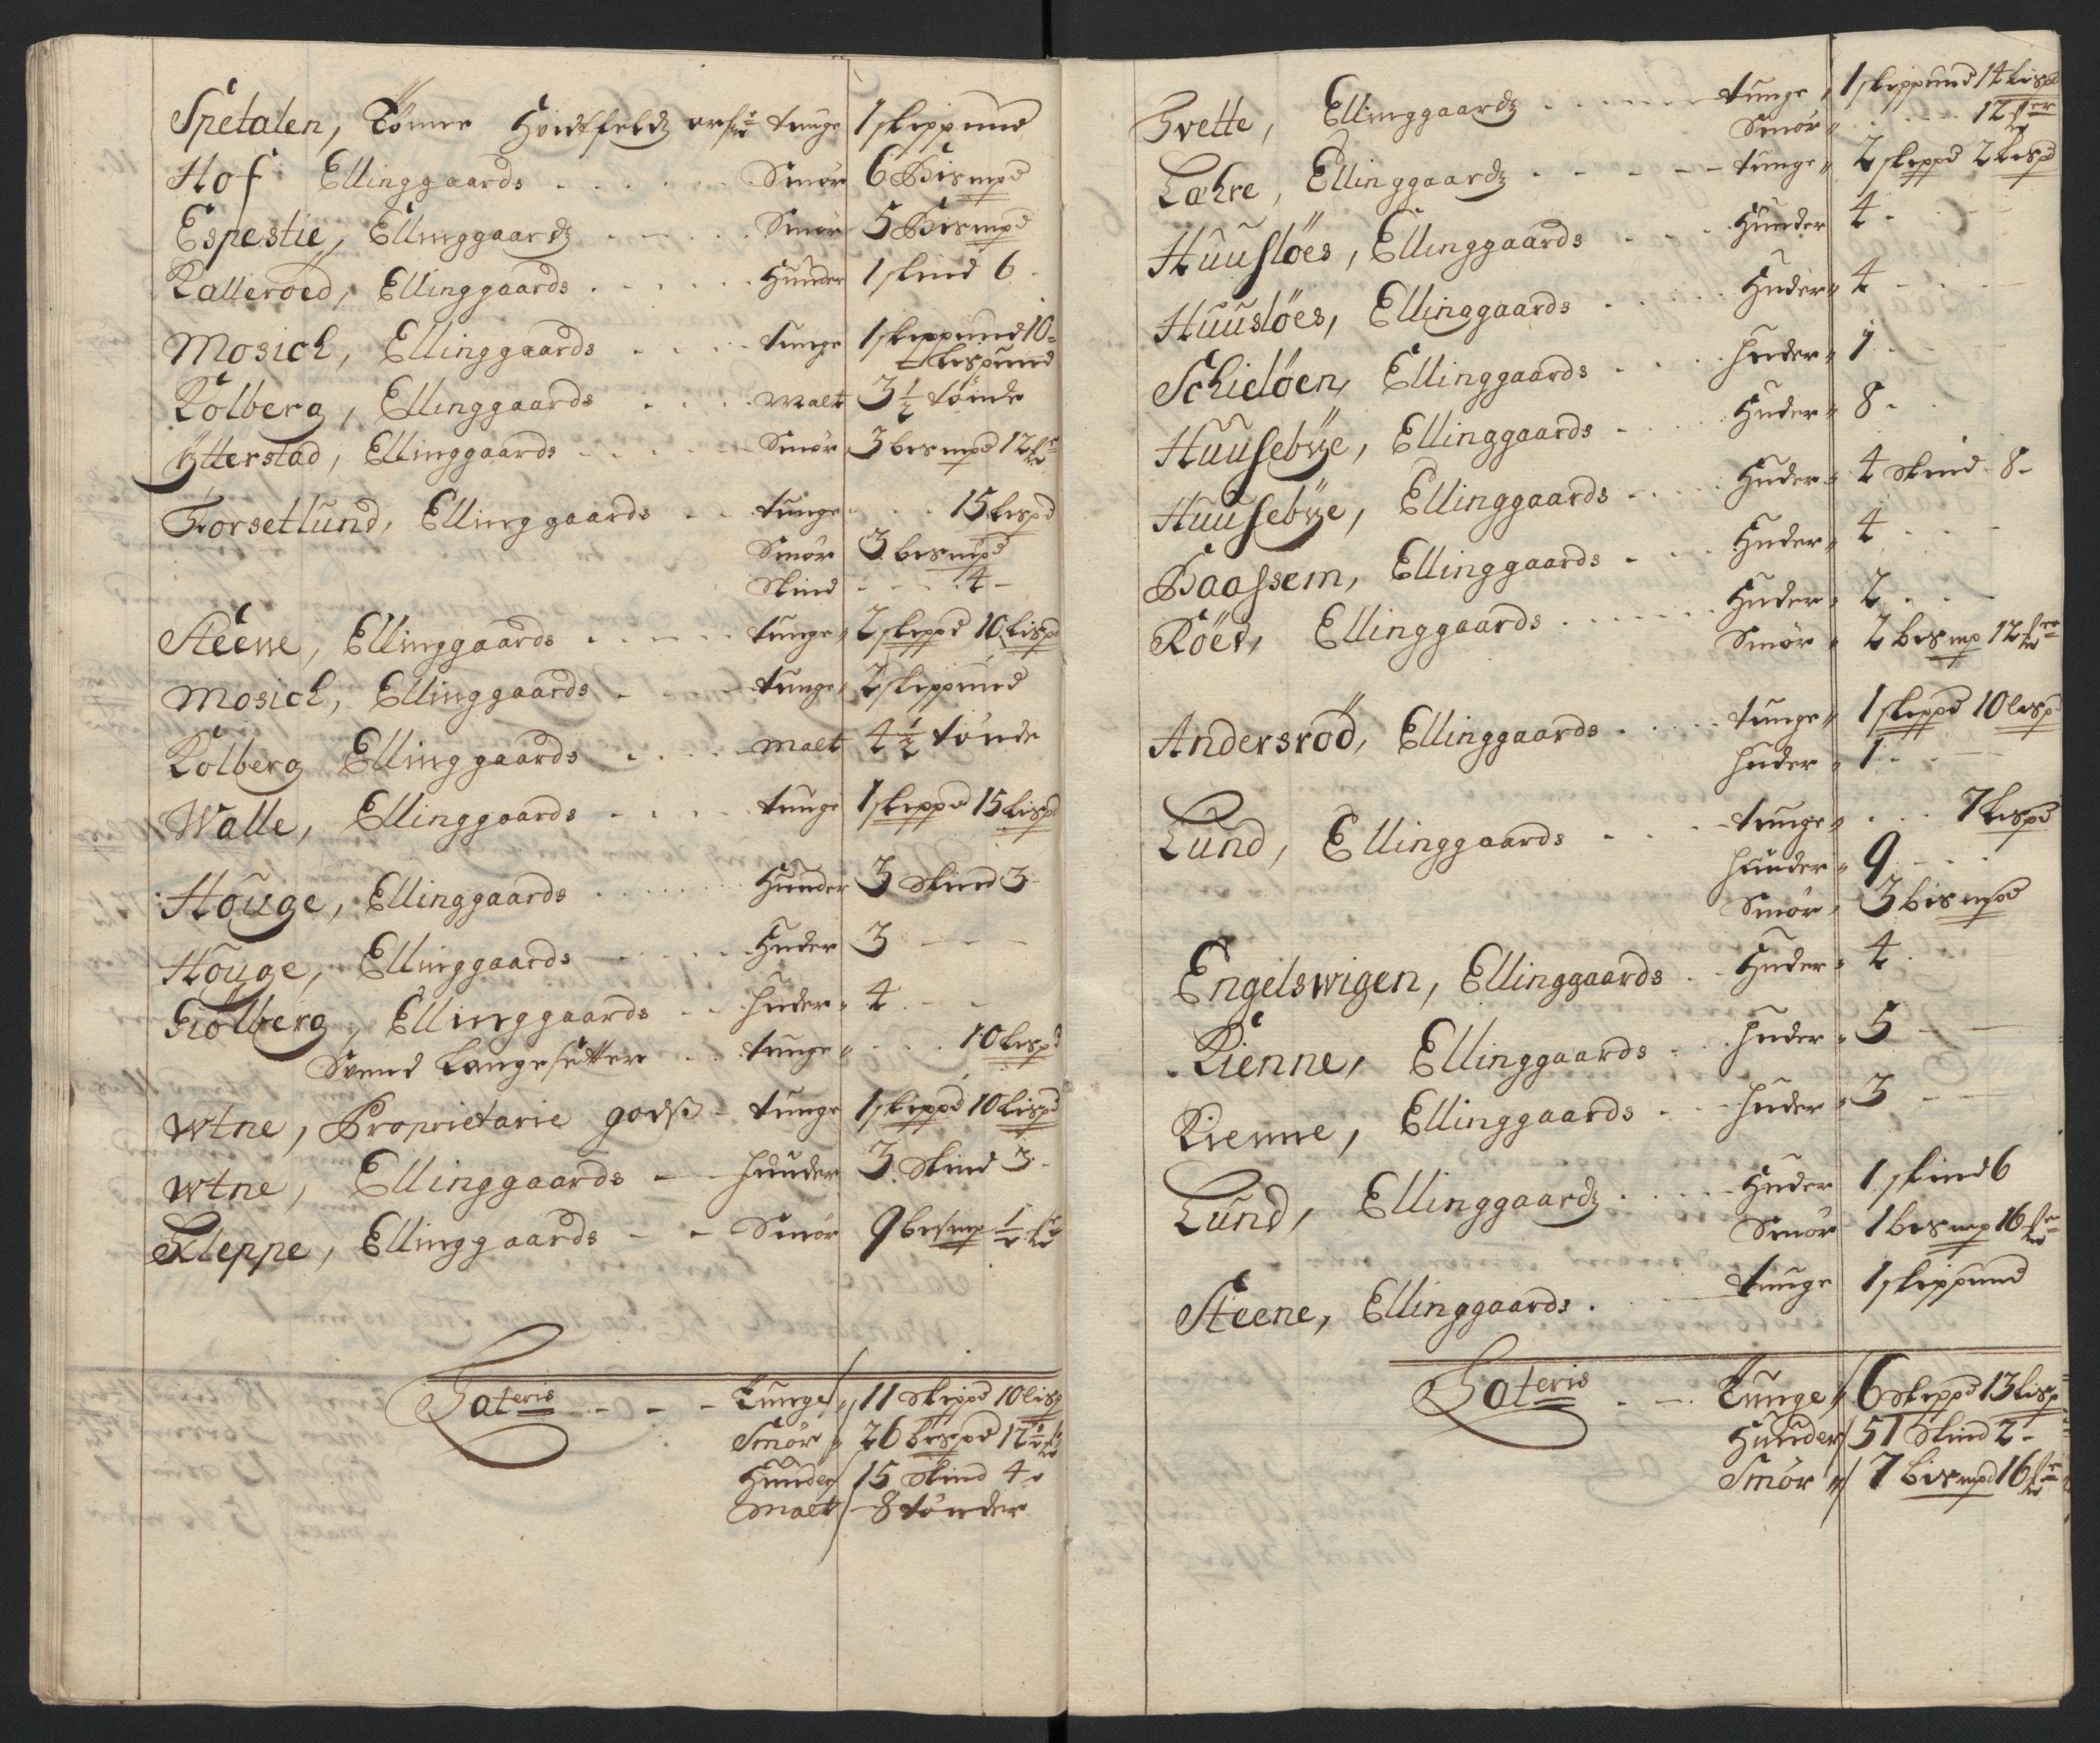 Spetalen, Tönne Hvidtfeldz arf: tunge 1 skippund
Hof Ellinggaards . . . . . . Smör 6 Bismpd
Espestie, Ellinggaardz . . . . Smör 5 Bismpd
Kalleröed, Ellinggaards . . . . . . Huuder 1 skind 6.
Mosich, Ellinggaards . . . . tunge 1 skippund 10
Lispund
Kolberg, Ellinggaards . . . . Malt 3 1/2 tönde
Ytterstad, Ellinggaards . . . . . Smör 3 bismpd 12
Torsetlund, Ellinggaards . . tunge . . . 15 Lispd
Smör 3 bismpd
Skind - - - 4 -
Steene, Ellinggaards . . . . . tunge 2 skippd 10 Lispd
Mosich, Ellinggaards . . . tunge 2 skippund
Kolberg Ellinggaards . . . . malt 4 1/2 tönde
Walle, Ellinggaards . . . . tunge 1 skippd 15 Lispd
Houge, Ellinggaards . . . . . . Huuder 3 Skind 3
Houge, Ellinggaards . . . . . Huder 3 - - -
Giolberg, Ellinggaards . . huder 4 - -
Svend Langesetter . . tunge . . . 10 Lispd
Wtne, Proprietarie godß - tunge 1 skippd 10 Lispd
Wtne, Ellinggaards - - huuder 3 Skind 3 -
Kleppe, Ellinggaards - - Smör 9 bismp
Lateris - - - Tunge 11 Skippd 10 Lisp
Smör 26 bispd 12
Huuder 15 Skind 4
Malt 8 tönder
Tvette, Ellinggaardz . . . . . tunge 1 skippund 14 Lispd
Smör . . . . 12
Lahre, Ellinggaardz . . . . - tunge 2 skippd 2 Lispd
Huusslöes, Ellinggaards . . . Huuder 4 - - -
Huuslöes, Ellinggaards . . . . . Huder 4 - - -
Schielöen, Ellinggaards . . . . huder 1 - -
Huusebÿe, Ellinggaards . . . . Huder 8 -
Huusebÿe, Ellinggaards . . . . Huder 4 Skind 8 -
Baassem, Ellinggaards . . . Huder 4 . . .
Röed, Ellinggaards . . . . . . Huder 2 . . .
Smör 2 bismp 12
Andersröd, Ellinggaards . . . . . tunge 1 skippd 10 Lispd
huder 1 - - -
Lund, Ellinggaards . . . - tunge . . . 7 Lispd
huuder 9 - - -
Smör 3 bismpd
Engelswigen, Ellinggaards . . Huder 4 . . .
Kienne, Ellinggaards . . . huder 5 - -
Kienne, Ellinggaards . . - huder 3 - -
Lund, Ellinggaardz . . . . . Huder 1 skind 6
Smör 1 bismp 16
Steene, Ellinggaards . . . tunge 1 skippund
Lateris . - . Tunge 6 Skippd 13 Lisp
Huuder 51 Skind 2 -
Smör 7 bismpd 16